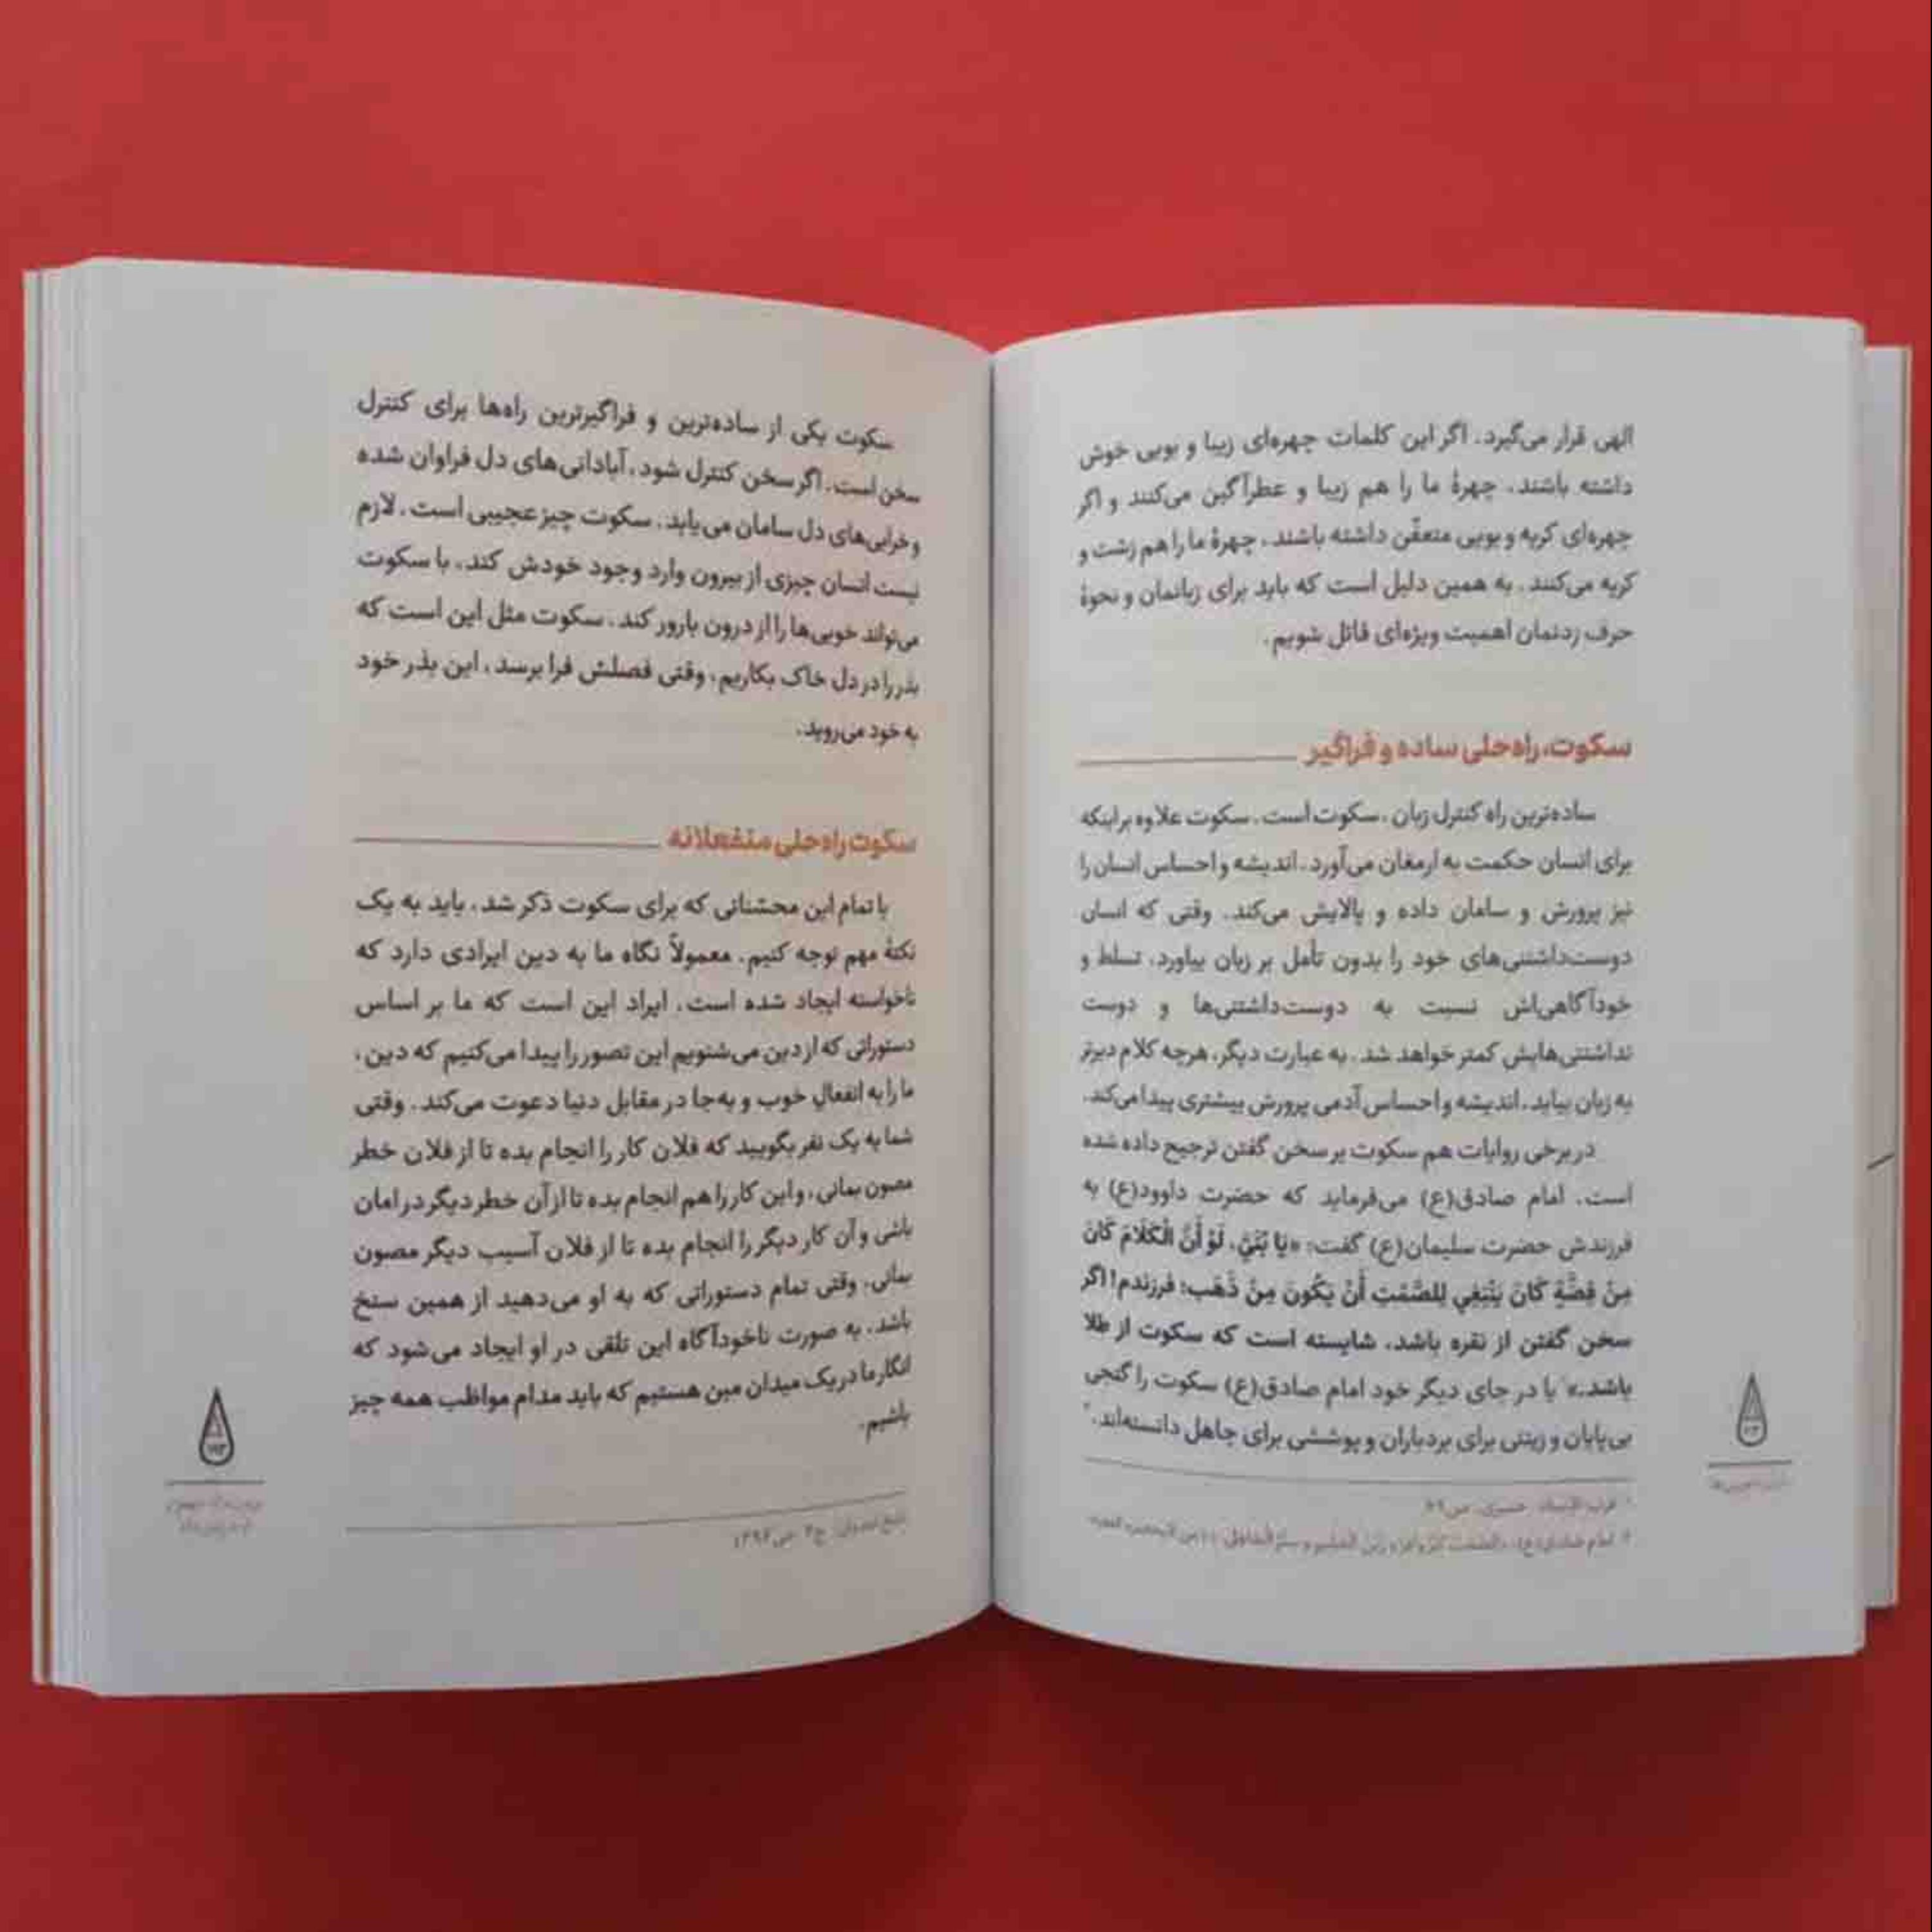 الهی قرار می‌گیرد. اگر این کلمات چهره‌ای زیبا و بویی خوش
داشته باشند، چهرۀ ما را هم زیبا و عطرآگین می‌کنند و اگر
چهره‌ای کریه و بویی متعفّن داشته باشند، چهرۀ ما را هم زشت و
کریه می‌کنند. به همین دلیل است که باید برای زبانمان و نحوۀ
حرف زدنمان اهمیت ویژه‌ای قائل شویم.
سکوت، راه‌حلی ساده و فراگیر
ساده‌ترین راه کنترل زبان، سکوت است. سکوت علاوه بر اینکه
برای انسان حکمت به ارمغان می‌آورد، اندیشه و احساس انسان را
نیز پرورش و سامان داده و پالایش می‌کند. وقتی که انسان
دوست‌داشتنی‌های خود را بدون تأمل بر زبان بیاورد، تسلط و
خودآگاهی‌اش نسبت به دوست‌داشتنی‌ها و دوست
نداشتنی‌هایش کمتر خواهد شد. به عبارت دیگر، هرچه کلام دیرتر
به زبان بیاید، اندیشه و احساس آدمی پرورش بیشتری پیدا می‌کند.
در برخی روایات هم سکوت بر سخن گفتن ترجیح داده شده
است. امام صادق(ع) می‌فرماید که حضرت داوود(ع) به
فرزندش حضرت سلیمان(ع) گفت: «یَا بُنَیَّ، لَوْ أَنَّ الْکَلَامَ کَانَ
مِنْ فِضَّةٍ کَانَ یَنْبَغِي لِلصَّمْتِ أَنْ یَکُونَ مِنْ ذَهَب؛ فرزندم! اگر
سخن گفتن از نقره باشد، شایسته است که سکوت از طلا
باشد.»۱ یا در جای دیگر خود امام صادق(ع) سکوت را گنجی
بی‌پایان و زینتی برای بردباران و پوششی برای جاهل دانسته‌اند.۲
۱. قرب الإسناد، حمیری، ص۶۹
۲. امام صادق(ع): «الصَّمْتُ کَنْزٌ وَافِرٌ وَ زَیْنُ الْحَلِیمِ وَ سِتْرُ الْجَاهِلِ»
سکوت یکی از ساده‌ترین و فراگیرترین راه‌ها برای کنترل
سخن است. اگر سخن کنترل شود، آبادانی‌های دل فراوان شده
و خرابی‌های دل سامان می‌یابد. سکوت چیز عجیبی است. لازم
نیست انسان چیزی از بیرون وارد وجود خودش کند، با سکوت
می‌تواند خوبی‌ها را از درون بارور کند. سکوت مثل این است که
بذر را در دل خاک بکاریم، وقتی فصلش فرا برسد، این بذر خود
به خود می‌روید.
سکوت راه‌حلی منفعلانه
با تمام این محسّناتی که برای سکوت ذکر شد، باید به یک
نکتۀ مهم توجه کنیم. معمولاً نگاه ما به دین ایرادی دارد که
ناخواسته ایجاد شده است. ایراد این است که ما بر اساس
دستوراتی که از دین می‌شنویم این تصور را پیدا می‌کنیم که دین،
ما را به انفعالِ خوب و به‌جا در مقابل دنیا دعوت می‌کند. وقتی
شما به یک نفر بگویید که فلان کار را انجام بده تا از فلان خطر
مصون بمانی، و این کار را هم انجام بده تا از آن خطر دیگر در امان
باشی و آن کار دیگر را انجام بده تا از فلان آسیب دیگر مصون
بمانی، وقتی تمام دستوراتی که به او می‌دهید از همین سنخ
باشد، به صورت ناخودآگاه این تلقی در او ایجاد می‌شود که
انگار ما در یک میدان مین هستیم که باید مدام مواظب همه چیز
باشیم.